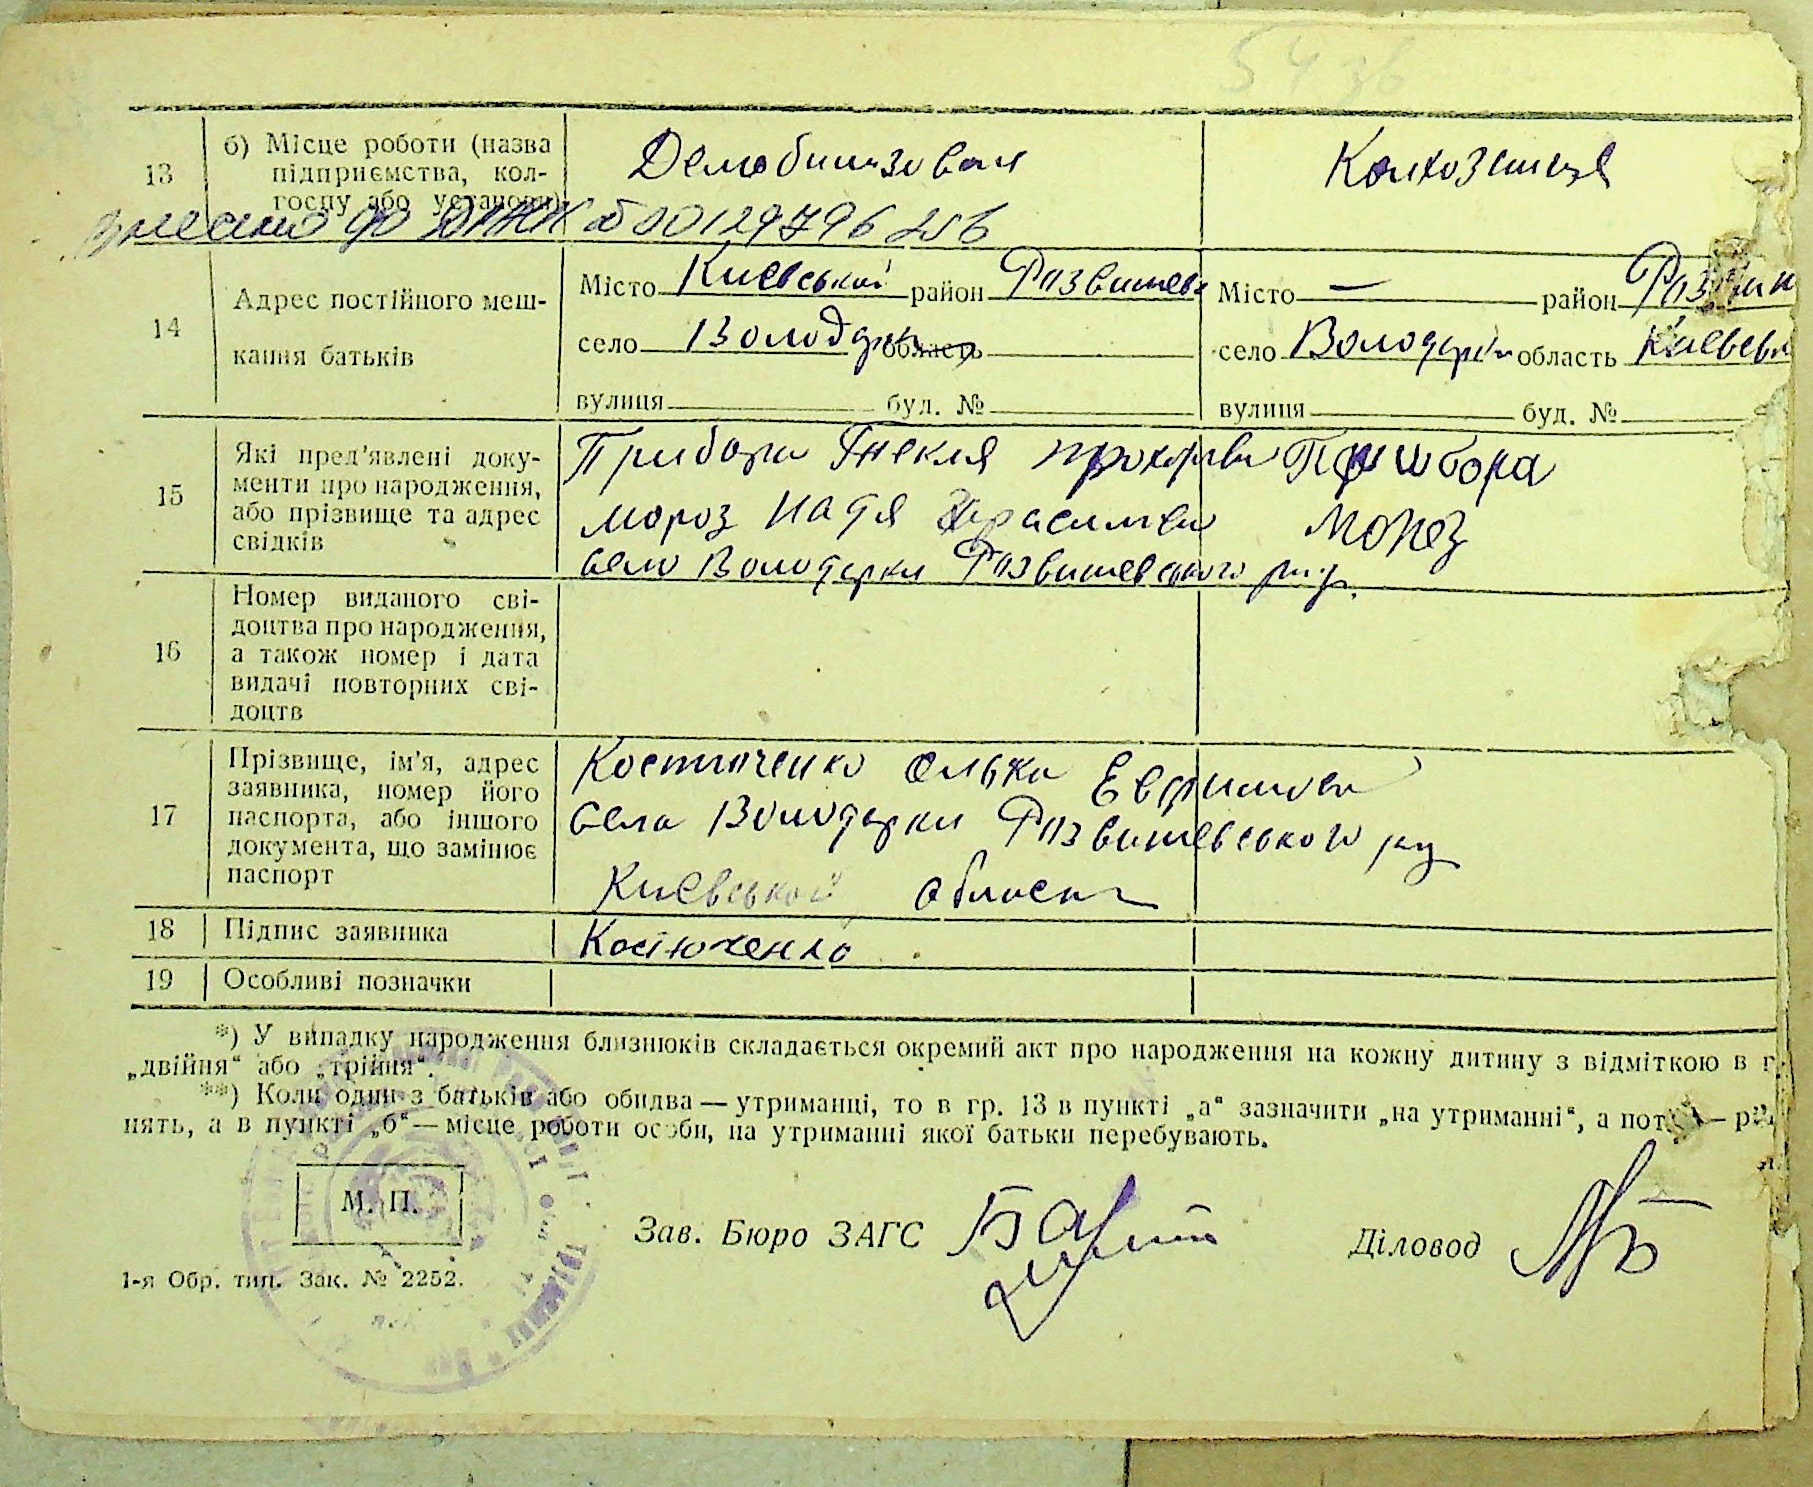 54 зв
13 б) Місце роботи (назва підприємства, колгоспу або установи) Демобилизован Колхозница
Внесено до ДРАЦС 00129796256
14 Адрес постійного мешкання батьків Місто Киевської район Розважев Місто — район Розваж
село Володарки область село Володарки область Киевськ
вулиця буд. № вулиця буд. №
15 Які пред'явлені документи про народження, або прізвище та адрес свідків
Прибора Текля Прохорівна Прибора
Мороз Надя Герасимівна Мороз
село Володарки Розважевського рну.
16 Номер виданого свідоцтва про народження, а також номер і дата видачі повторних свідоцтв
17 Прізвище, ім'я, адрес заявника, номер його паспорта, або іншого документа, що замінює паспорт
Костюченко Олька Евфимовна
села Володарки Розважевського р-ну
Киевської области
18 Підпис заявника Костюченко
19 Особливі позначки
*) У випадку народження близнюків складається окремий акт про народження на кожну дитину з відміткою в г.
„двійня“ або „трійня“.
**) Коли один з батьків або обидва — утриманці, то в гр. 13 в пункті „а“ зазначити „на утриманні“, а пот
нять, а в пункті „б“ — місце роботи особи, на утриманні якої батьки перебувають.
М. П.
Зав. Бюро ЗАГС Діловод
1-я Обр. тип. Зак. № 2252.